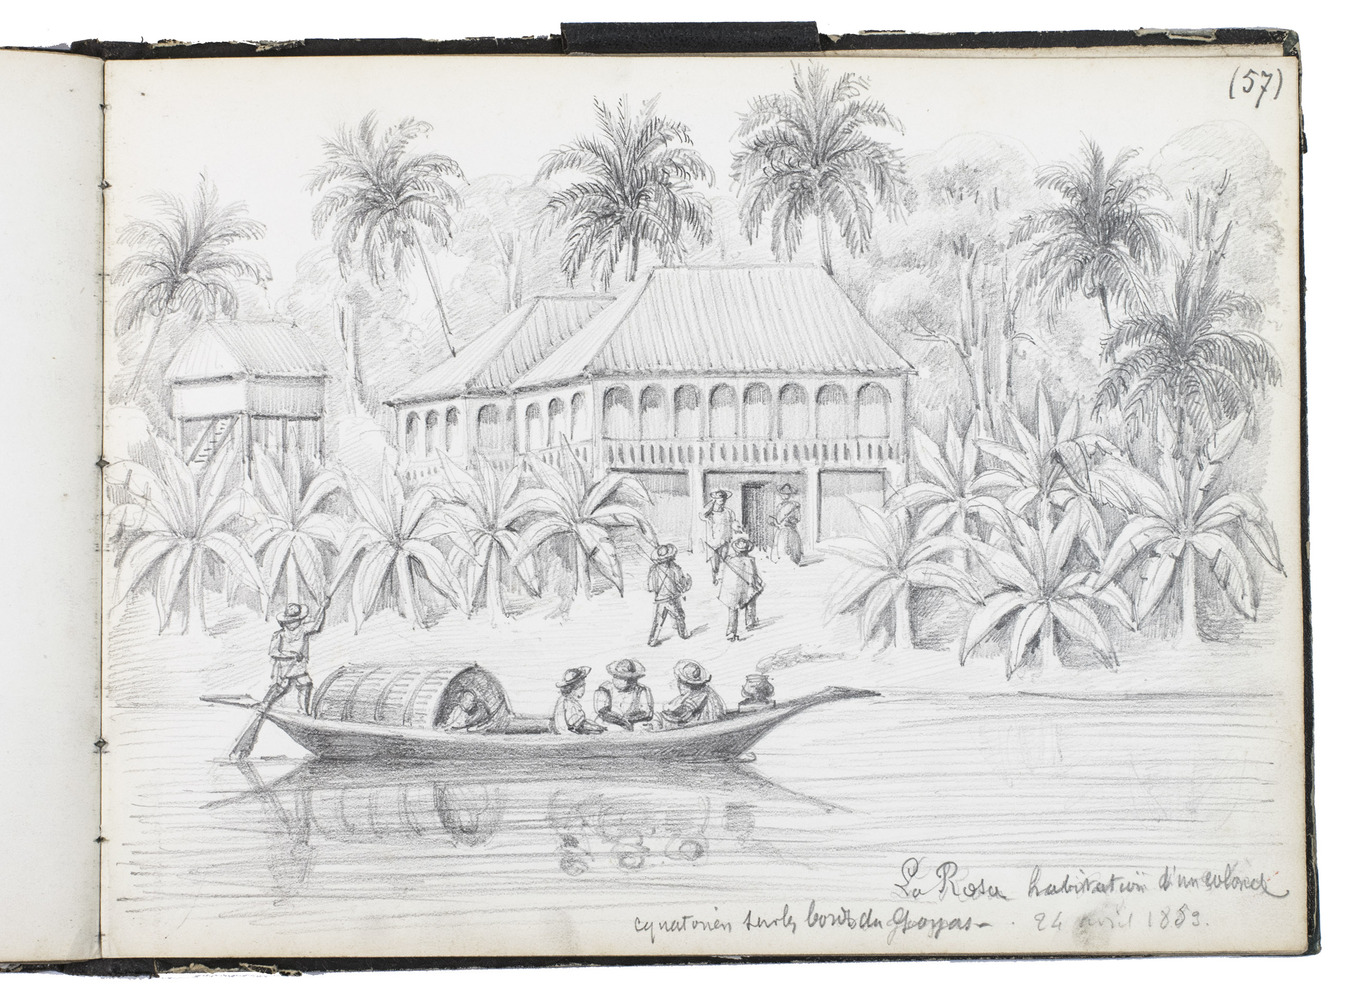 (57)
La Rosa habitation d'un colonel
equatorien sur les bords du Guayas - 24 avril 1859.